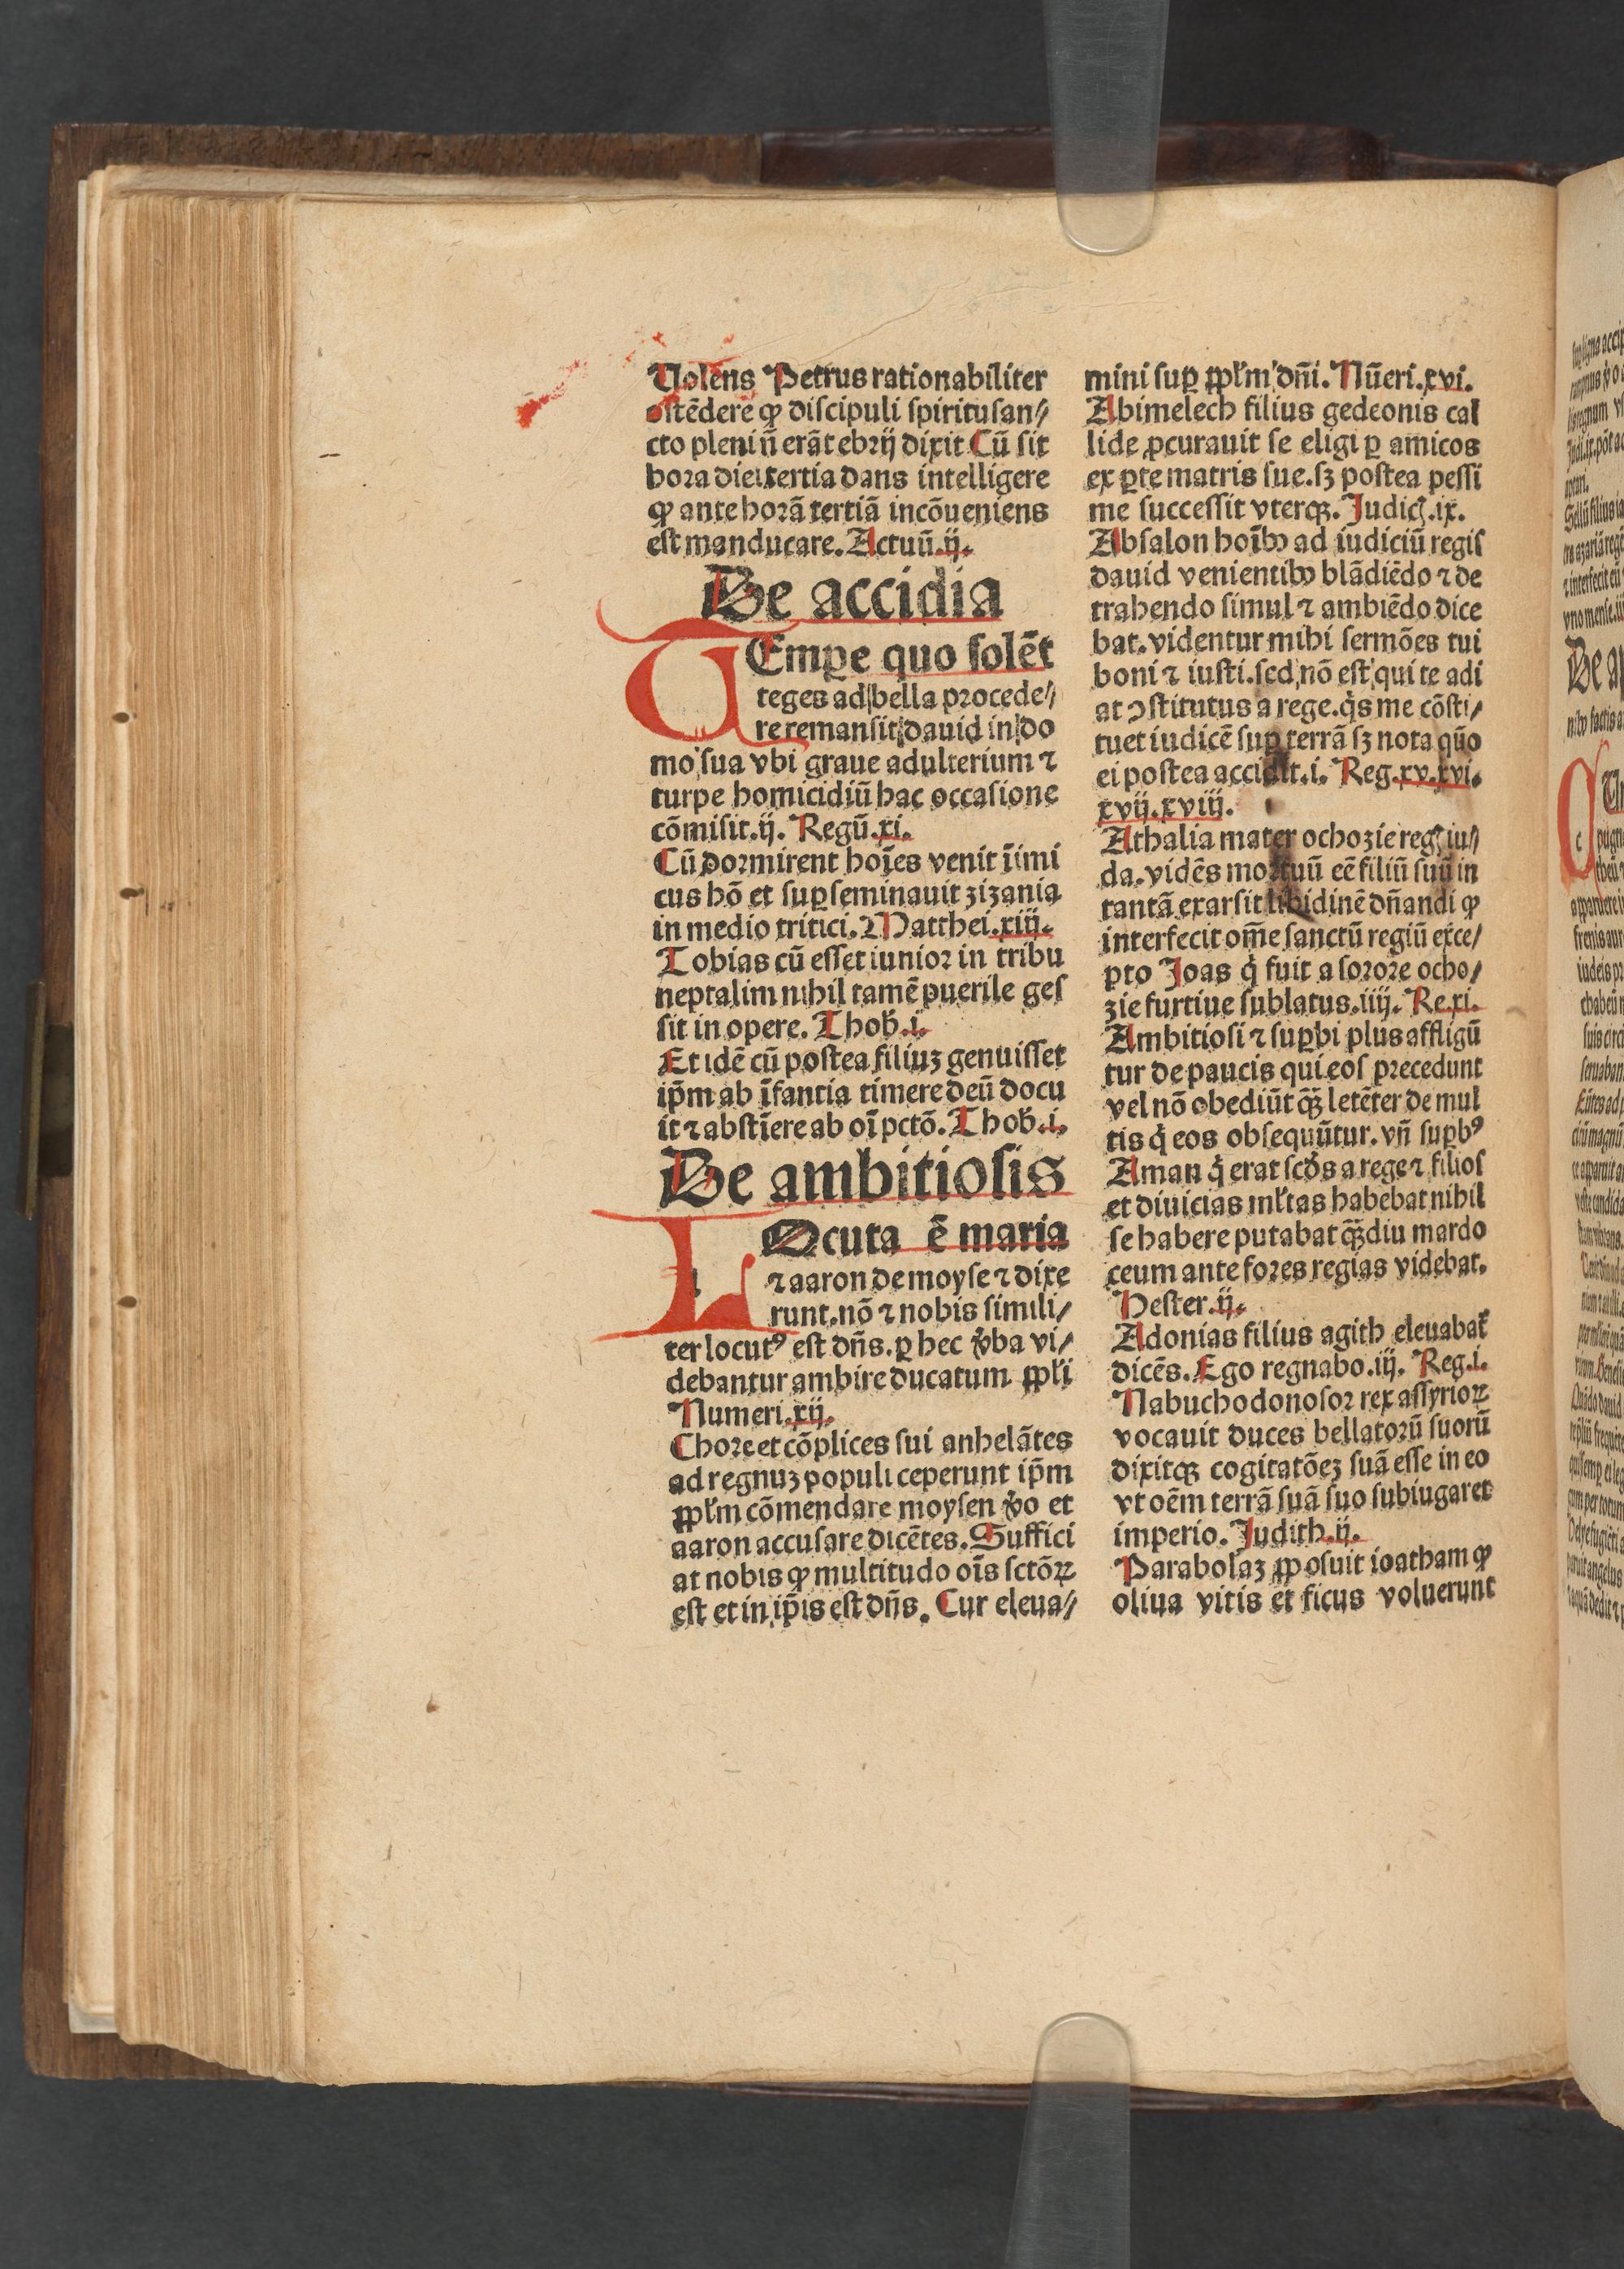 Uolens Petrus rationabiliter
ostēdere ꝙ discipuli spiritusan⸗
cto pleni nō erāt ebrij dixit Cū sit
hora diei tertia dans intelligere
ꝙ ante horā tertiā incōueniens
est manducare. Actuū.ij.
De accidia
TEmpe quo solēt
reges ad bella procede⸗
re remansit dauid in do
mo sua vbi graue adulterium ⁊
turpe homicidiū hac occasione
cōmisit.ij. Regū.xi.
Cū dormirent hoīes venit īimi
cus hō et suꝑseminauit zizania
in medio tritici. Matthei.xiij.
Tobias cū esset iunior in tribu
neptalim nihil tamē puerile ges
sit in opere. Thob̄.i.
Et idē cū postea filiuꝫ genuisset
ip̄m ab īfantia timere deū docu
it ⁊ abstīere ab oī pctō. Thob̄.i.
De ambitiosis
LOcuta ē maria
⁊ aaron de moyse ⁊ dixe
runt. nō ⁊ nobis simili/
ter locutꝰ est dn̄s. ꝑ hec ꝟba vi/
debantur ambire ducatum ꝓpl̄i
Numeri.xij.
Chore et cōplices sui anhelātes
ad regnuꝫ populi ceperunt ip̄m
ꝓpl̄m cōmendare moysen ꝟo et
aaron accusare dicētes. Suffici
at nobis ꝙ multitudo oīs sctōꝝ
est et in ip̄is est dn̄s. Cur eleua⸗
mini suꝑ ꝓpl̄m dn̄i. Nūeri.xvi.
Abimelech filius gedeonis cal
lide ꝓcurauit se eligi ꝑ amicos
ex ꝑte matris sue. sꝫ postea pessi
me successit vterqꝫ. Judicꝭ.ix.
Absalon hoībꝰ ad iudiciū regis
dauid venientibꝰ blādiēdo ⁊ de
trahendo simul ⁊ ambiēdo dice
bat. videntur mihi sermōes tui
boni ⁊ iusti. sed nō est qui te adi
at ꝯstitutus a rege. q̇s me cōsti/
tuet iudicē suꝑ terrā sꝫ nota qūo
ei postea accidit.i. Reg.xv.xvi.
xvij.xviij.
Athalia mater ochozie regꝭ iu⸗
da. vidēs mortuū eē filiū suū in
tantā exarsit libidinē dn̄andi ꝙ
interfecit om̄e sanctū regiū exce/
pto Joas q̇ fuit a sorore ocho/
zie furtiue sublatus.iiij. Re.xi.
Ambitiosi ⁊ suꝑbi plus affligū
tur de paucis qui eos precedunt
vel nō obediūt qꝫ̄ letēter de mul
tis q̇ eos obsequūtur. vn̄ suꝑbꝰ
Aman q̇ erat scd̄s a rege ⁊ filios
et diuicias ml̄tas habebat nihil
se habere putabat qꝫ̄diu mardo
ceum ante fores regias videbat.
Hester.ij.
Adonias filius agith eleuabat̄
dicēs. Ego regnabo.iij. Reg.i.
Nabuchodonosor rex assyrioꝝ
vocauit duces bellatorū suorū
dixitqꝫ cogitatōeꝫ suā esse in eo
vt oēm terrā suā suo subiugaret
imperio. Judith.ij.
Parabolaꝫ ꝓposuit ioatham ꝙ
oliua vitis et ficus voluerunt